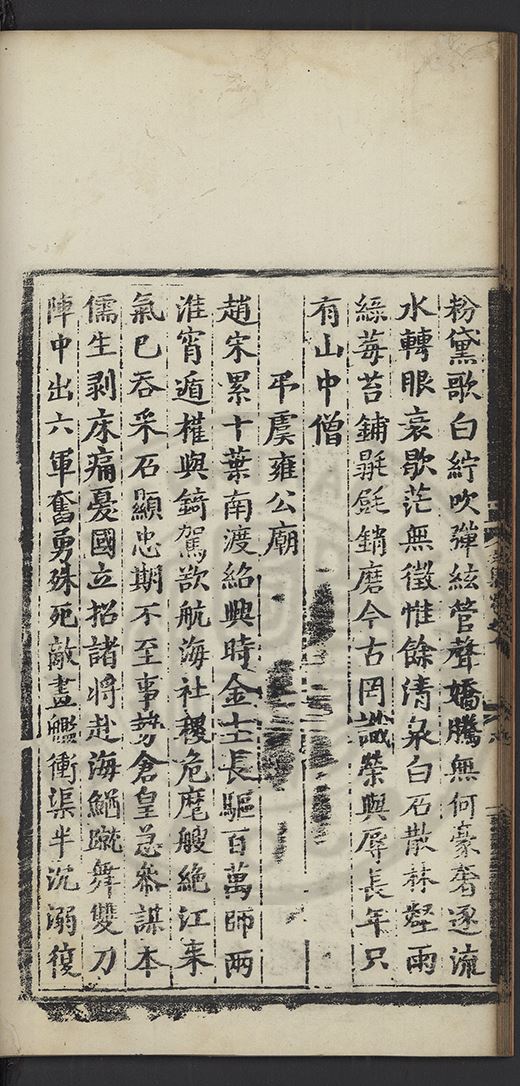 粉黛歌白紵吹彈絃管聲嬌騰無何豪奢逐流
水轉眼衰歇茫無徵惟餘清泉白石散林壑雨
綠莓苔鋪毾㲪銷磨今古罔識榮與辱長年只
有山中僧
弔虞雍公廟
趙宋累十葉南渡紹興時金士長驅百萬師兩
淮宵遁權與錡駕欲航海社稷危麾艘絶江來
氣已吞采石顯忠期不至事勢倉皇急參謀本
儒生剥床痛憂國立招諸將赴海鰌蹴舞雙刀
陣中出六軍奮勇殊死敵盡艦衝渠半沉溺復